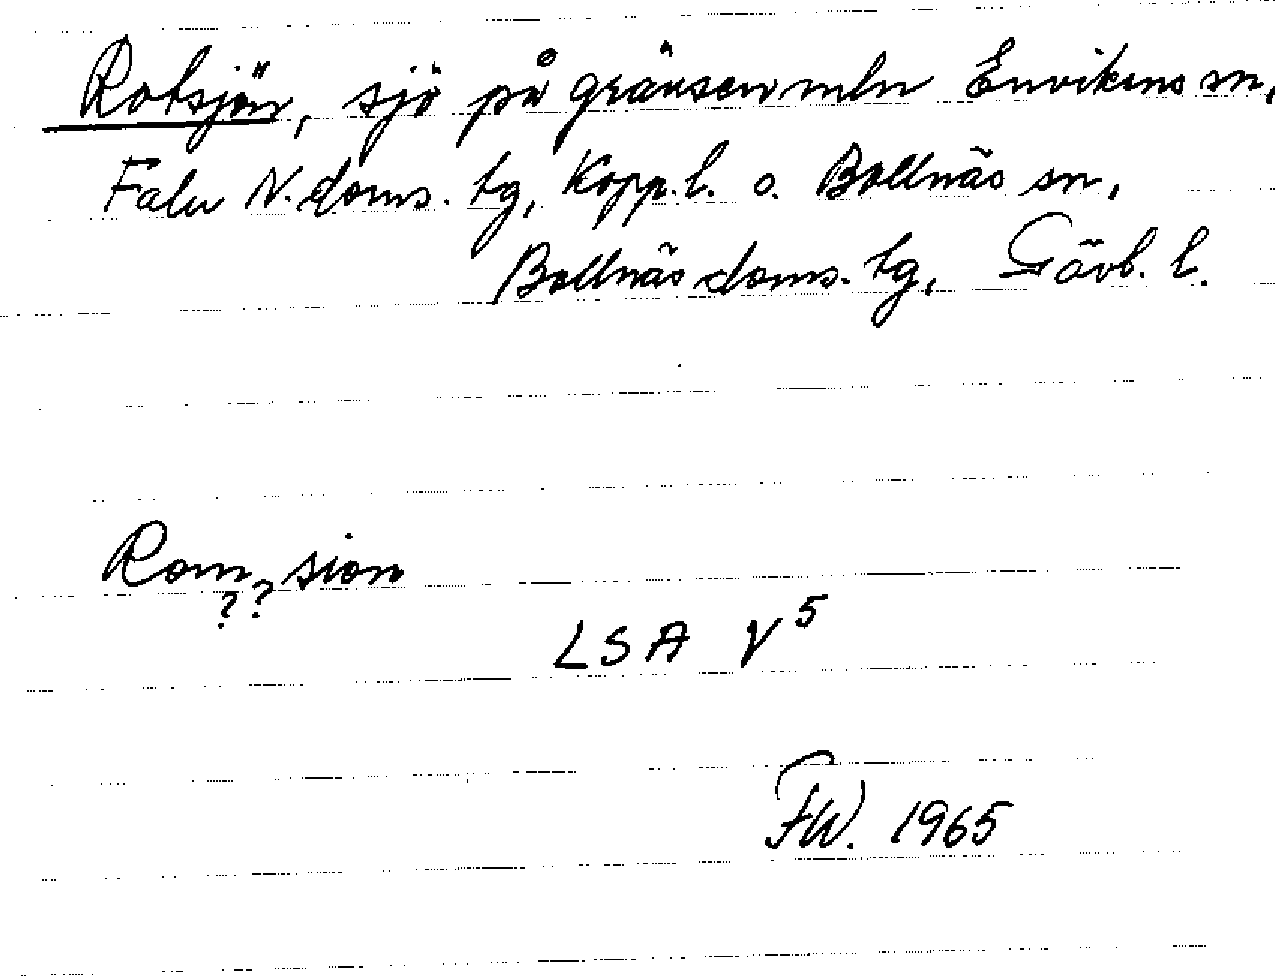 Rotsjön, sjö på gränsen mln Envikens sn,
Falu N. doms. tg, Kopp. l. o. Bollnäs sn,
Bollnäs doms. tg, Gävl. l.
Rom sion
? ?
LSA V5
FW. 1965